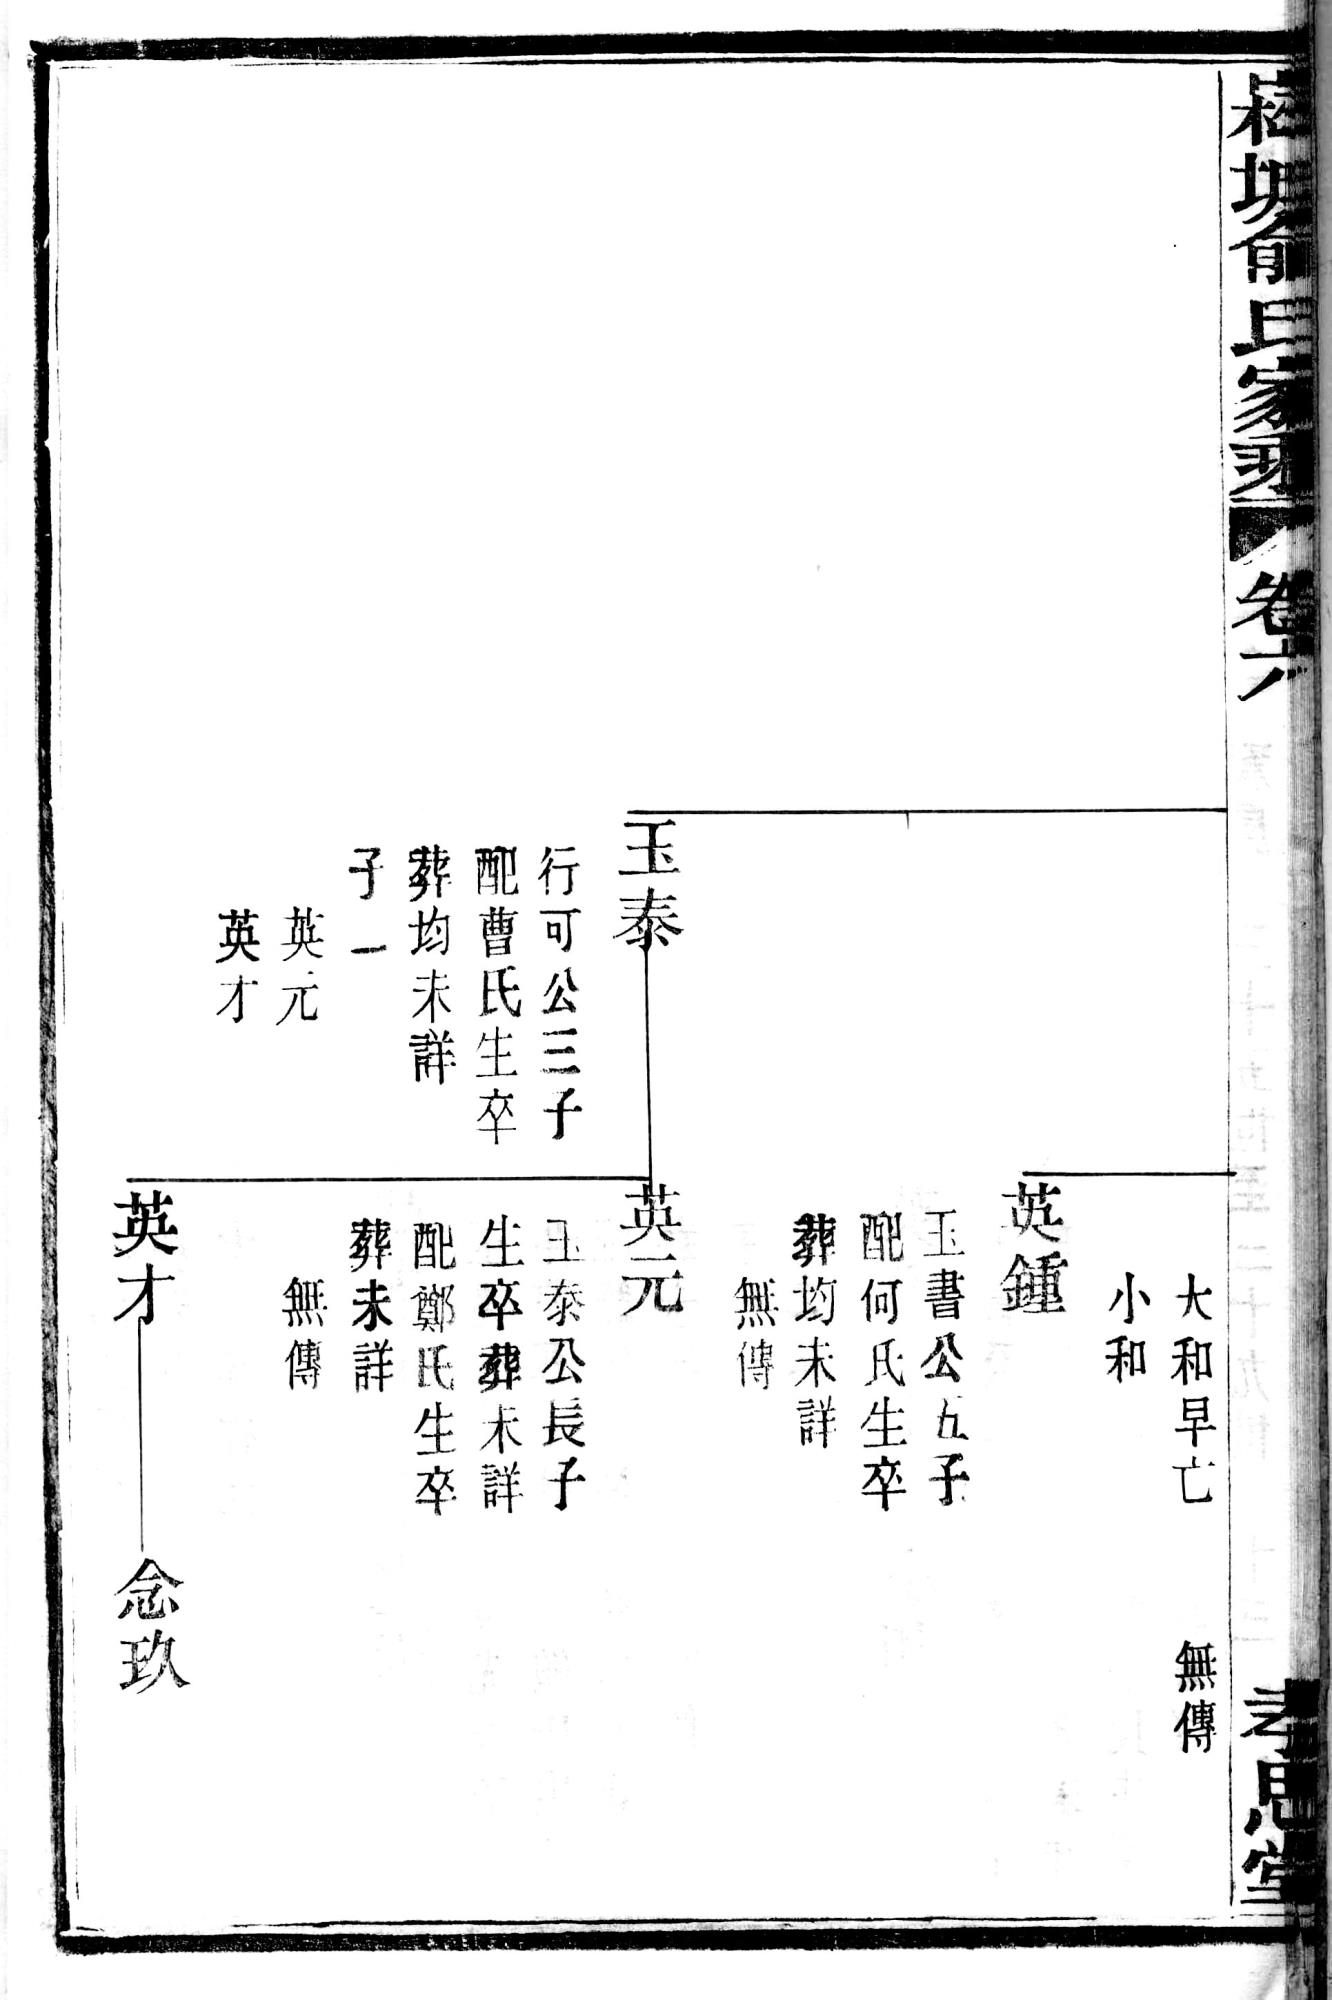 塘俞氏家乘
卷六
孝思堂
大和早亡
小和
無傳
英鍾
玉書公五子
配何氏生卒
葬均未詳
無傳
玉泰
行可公三子
配曹氏生卒
葬均未詳
子一
英元
英才
英元
玉泰公長子
生卒葬未詳
配鄭氏生卒
葬未詳
無傳
英才
念玖